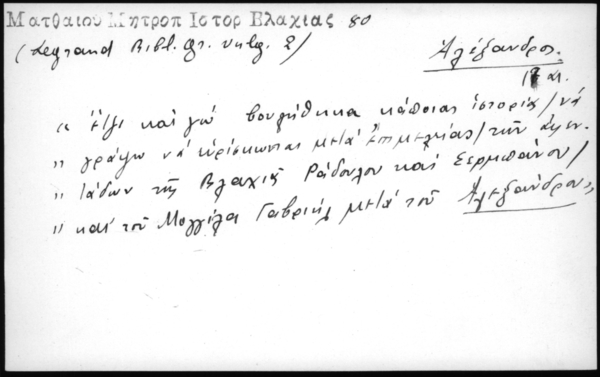 Ματθαιου Μητροπ Ιστορ Βλαχιας 80
(Legrand Bibl. gr. vulg. 2)
Ἀλέξανδρος.
17 αι.
" Ἔτζι καὶ γὼ βουλήθηκα κάποιας ἱστορίας / νὰ
" γράψω νὰ εὑρίσκωνται μετὰ ἐπιμελείας / τῶν
" τῆς Βλαχιᾶς Ράδουλου καὶ Σερμπάνου /
" καὶ τοῦ Μογγίλα Γαβριὴλ μετὰ τοῦ Ἀλεξάνδρου "